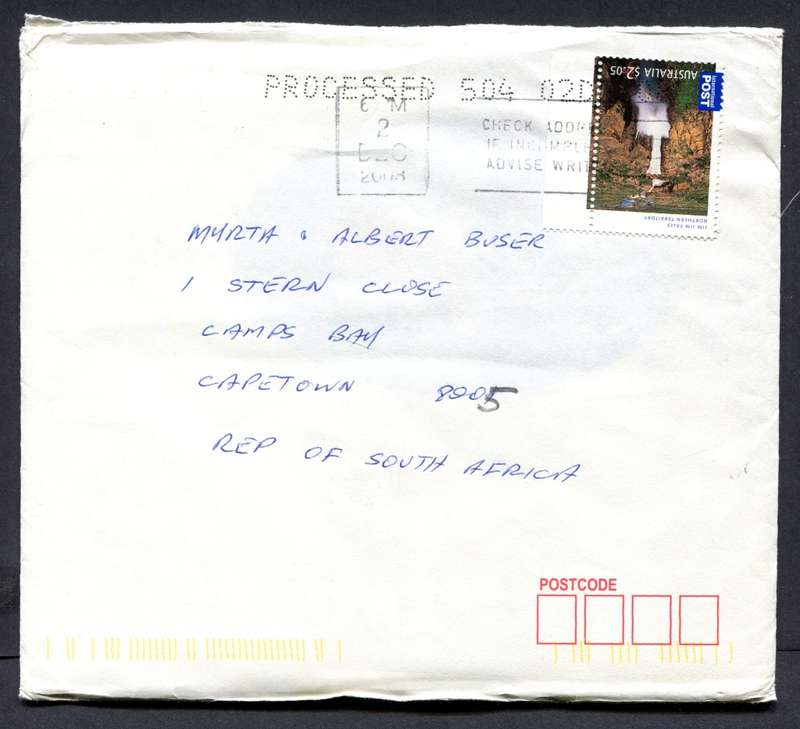 PROCESSED 504 02D
2
DEC
2008
CHECK ADDR
IF INCOMPLE
ADVISE WRIT
AUSTRALIA $2.05
International
POST
JIM JIM FALLS
NORTHERN TERRITORY
MYRTA & ALBERT BUSER
1 STERN CLOSE
CAMPS BAY
CAPETOWN 8005
REP OF SOUTH AFRICA
POSTCODE